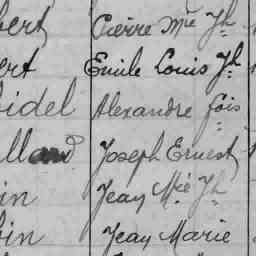 bert Pierre Mie Jh
ert Emile Louis Jh
idel Alexandre fois
lland Joseph Ernest
in Jean Mie Jh
bin Jean Marie